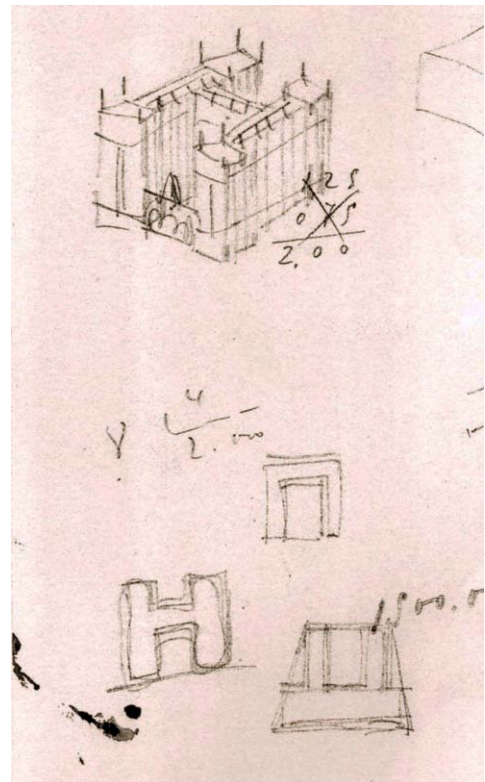 1 2 5
0 7 5
2.00
4
2.000
H
1,500.0